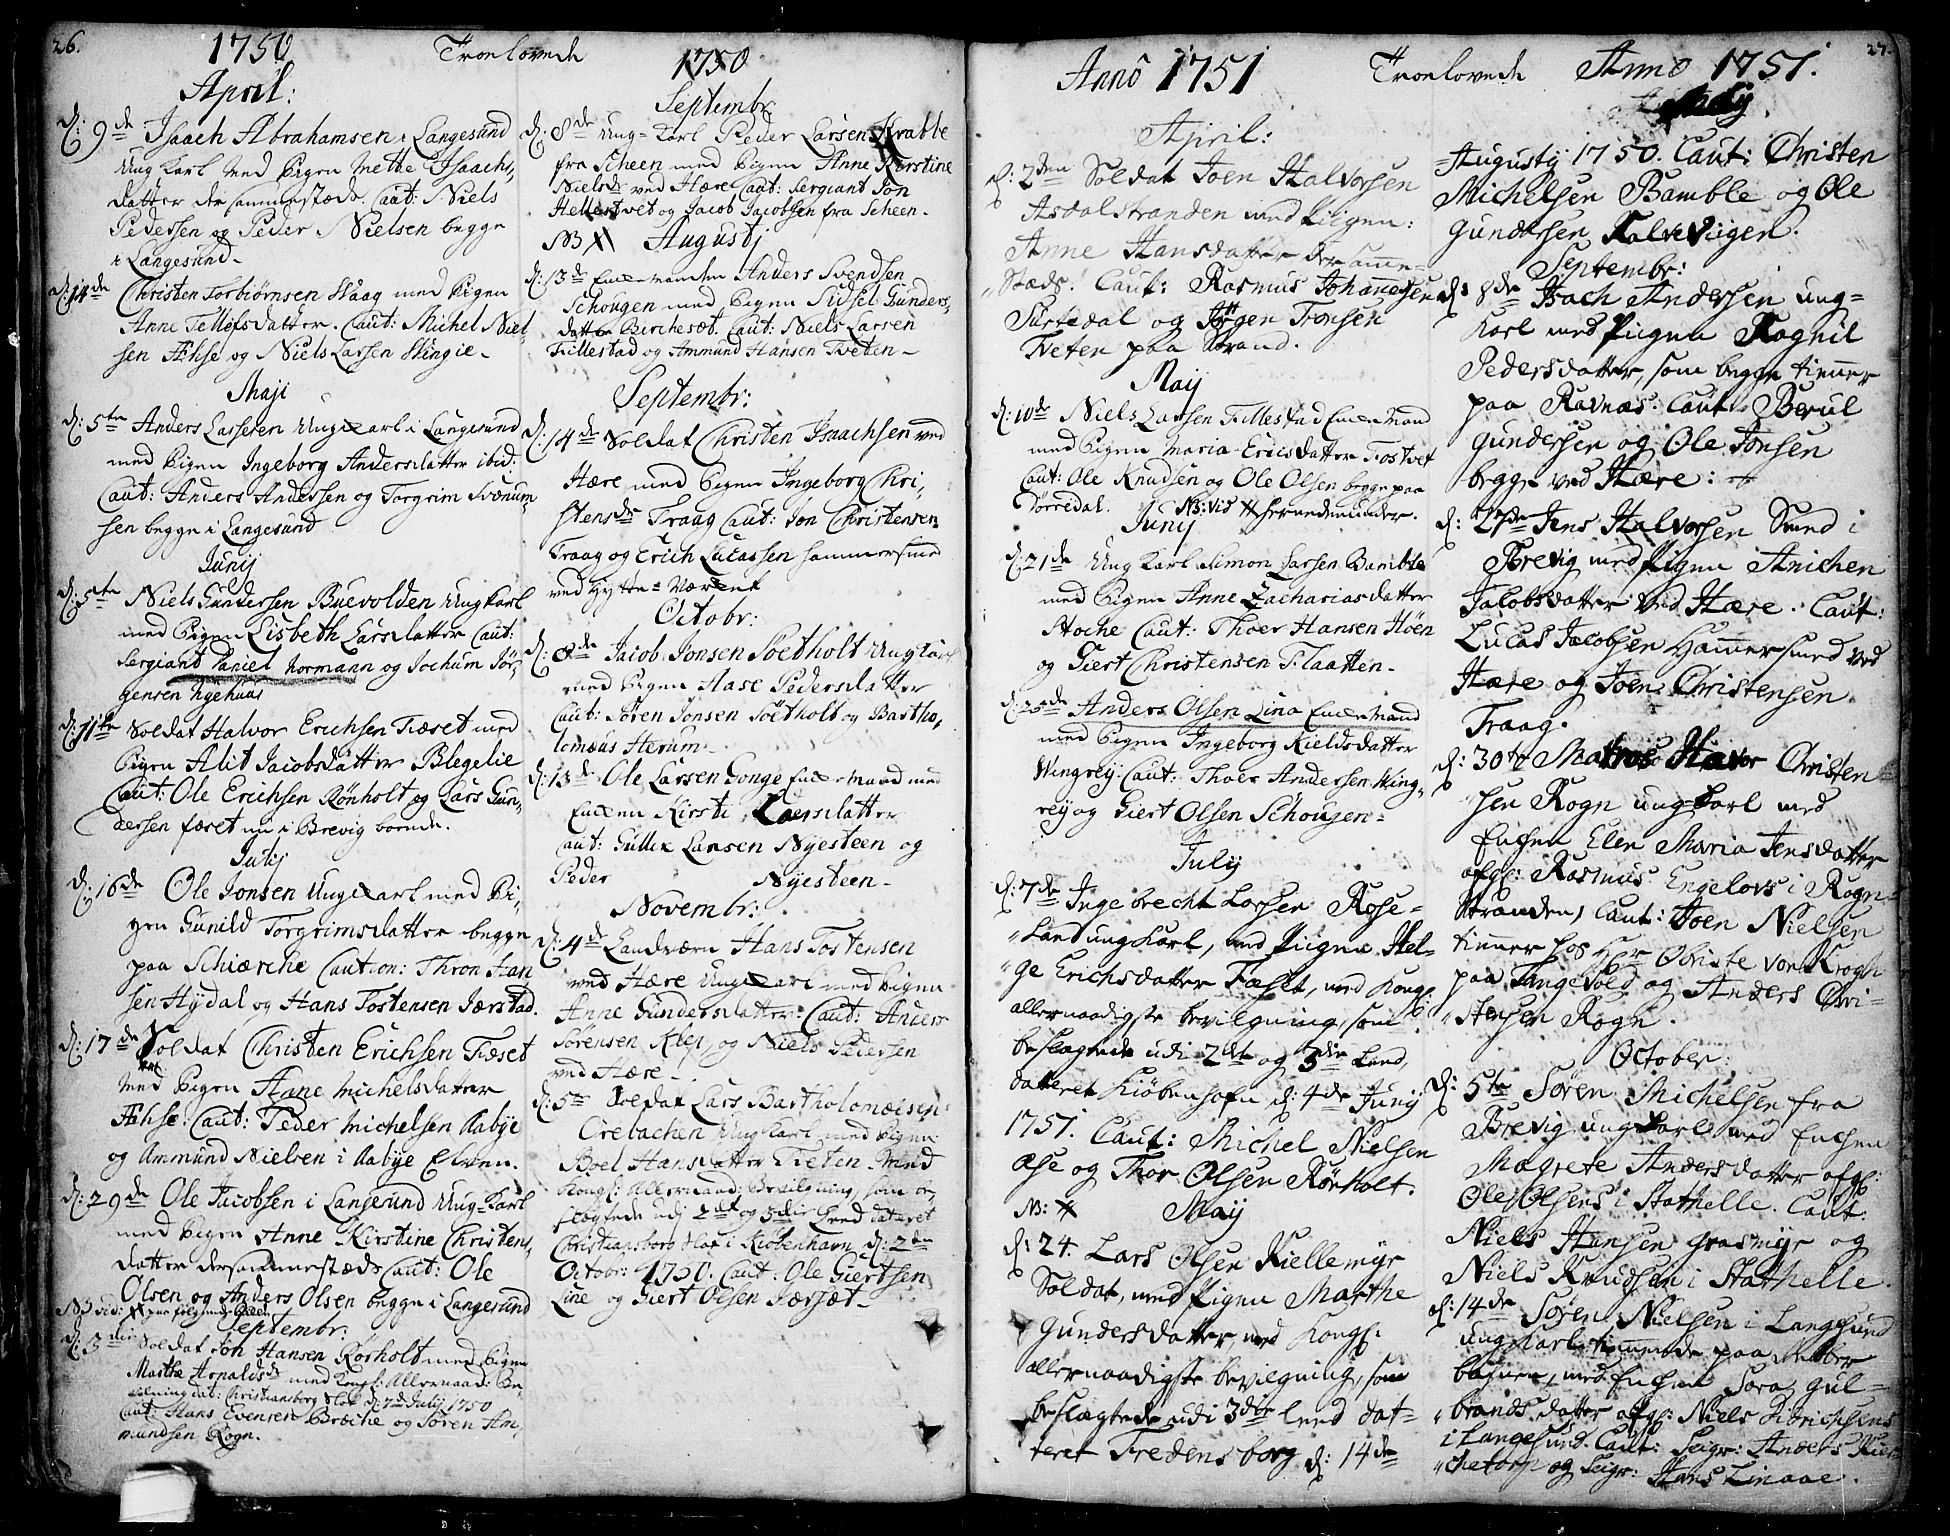 26.
1750 Troelovede
April:
d: 9de Isaach Abrahamsen i Langesund
ung karl med Pigen Mette Isaachs-
datter dersammestæds. Caut: Niels
Pedersen og Peder Nielsen begge
i Langesund.
d: 14de Christen Torbiørnsen Skaag med Pigen
Anne Tellofsdatter. Caut: Michel Niel-
sen Æhse og Niels Larsen Skingie.
Maji
d: 5te Anders Larsen Ungkarl i Langesund
med Pigen Ingeborg Andersdatter ibid:
Caut: Anders Andersen og Torgrim Svenum-
sen begge i Langesund
Junij
d: 5te Niels Gundersen Buevolden Ungkarl
med Pigen Lisbeth Larsdatter Caut:
Sergiant Daniel Normann og Jochum Jør-
gensen Nyehuus
d: 11te Soldat Halvor Erichsen Fæset med
Pigen Alit Jacobsdatter Blegelie
Caut: Ole Erichsen Rønholt og Lars Gun-
dersen fæset nu i Brevig boende.
Julij
d: 16de Ole Jonsen Ungkarl med Pi-
gen Gunild Torgrimsdatter begge
paa Schiærche Caution: Thron Han-
sen Hydal og Hans Tostensen Jærstad.
d: 17de Soldat Christen Erichsen Fæset
med Pigen Anne Michelsdatter
Æhse. Caut: Peder Michelsen Aabye
og Ammund Nielsen i Aabye Elven.
d: 29de Ole Jacobsen i Langesund Ung-Karl
med Pigen Anne Kirstine Christens-
datter dersammestæds Caut: Ole
Olsen og Anders Olsen begge i Langesund
NB vid:
Septembr:
d: 3die Soldat Jon Hansen Rørholt med Pigen
Marthe Arnoldsd: med Kongl: Allernaad: Be-
vilning dat: Christiansborg Slot d: 7de Julij 1750
Caut: Hans Evensen Bræche og Søren Am-
mundsen Rogn.
1750
Septembr
d: 8de Ung-Karl Peder Larsen Krabbe
fra Scheen med Pigen Anne Kirstine
Nielsd: ved Hære Caut: Sergiant Jon
Hellestvet og Jacob Jacobsen fra Scheen.
NB Augustj
d: 13de Enkemanden Anders Svendsen
Schougen med Pigen Sidsel Gunders-
datter Birchesæt. Caut: Niels Larsen
Tillestad og Ammund Hansen Tveten
Septembr:
d: 14de Soldat Christen Isaachsen ved
Hære med Pigen Ingeborg Chri-
stensdr Traag Caut: Jon Christensen
Traag og Erich Lucassen hammersmed
ved Hytte-Værket
Octobr:
d: 8de Jacob Jonsen Søetholt Ungkarl
med Pigen Aase Pedersdatter
Caut: Søren Jonsen Søetholt og Bartho-
lomæus Herum.
d: 13de Ole Larsen Gonge Enkemand med
Enken Kirsti Larsdatter
Caut: Gullik Larsen Nyesteen og
Peder Nyesteen
Novembr:
d: 4de Landværn Hans Tostensen
ved Hære Ungkarl med Pigen
Anne Gundersdatter Caut: Anders
Sørensen Klep, og Niels Pedersen
ved Hære
d: 5te Soldat Lars Bartholomæisen
Orebachen Ungkarl med Pigen
Boel Hansdatter Tveten. Med
Kongl: Allernaad: Bevilgning, som be-
slægtede udj 2det og 3die Leed dateret
Christiansborg Slot i Kiøbenhavn d: 2den
Octobr: 1750. Caut: Ole Giertsen
Line og Giert Olsen Jærsæt
Anno 1751 Troelovede Anno 1751. 27.
April:
d: 2den Soldat Joen Halvorsen
Asdalstranden med Piigen:
Anne Hansdatter dersamme-
Stæds. Caut: Rasmus Johannessen
Surtedal og Jørgen Tronsen
Tveten paa Strand.
May
d: 10de Niels Larsen Tillestad Enkemand
med Pigen Maria Ericsdatter Tostvet
Caut: Ole Knudsen og Ole Olsen begge paa
Dørredal. NB: vid herundenunder.
Junij
d: 21de Ung Karl Simon Larsen Bamble
med Pigen Anne Zachariasdatter
Stoche Caut: Thoer Hansen Høen
og Giert Christensen Plaatten
d: 25de Anders Olsen Lina Enkemand
med Pigen Ingeborg Kieldsdatter
Wingrej: Caut: Thoer Andersen Wing-
rej og Giert Olsen Schougen
July
d: 7de Ingebrecht Larsen Rose-
land ungkarl, med Piigen Hel-
ge Erichsdatter Fæset, med Kongl:
allernaadigste bevilgning, som
beslægtede udi 2det og 3die Leed,
dateret Kiøbenhafn d: 4de Junij
1751. Caut: Michel Nielsen
Ase og Thor Olsen Rørholt.
NB: May
d: 24. Lars Olsen Kiellemyr
Soldat, med Piigen Marthe
Gundersdatter, med Kongl:
allernaadigste bevilgning, som
beslægtede udi 3die leed dat-
teret Fredensborg d: 14de
Augustij 1750. Caut: Christen
Michelsen Bamble og Ole
Gundersen Kalveviigen.
Septembr:
d: 8de Isach Andersen ung-
karl med Piigen Ragnil
Pedersdatter, som begge tienner
paa Ravnæs. Caut: Berul
Gundersen og Ole Jonsen
begge ved Hære:
d: 27de Jens Halvorsen Smed i
Brevig med Piigen Anichen
Jacobsdatter ved Hære. Caut:
Lucas Jacobsen Hammersmed ved
Hære og Joen Christensen
Traag.
d: 30te Matros Halvor Christen-
sen Rogn ungkarl med
Enchen Elen Maria Jensdatter
afgl: Rasmus Engelovs i Rogn-
stranden, Caut: Joen Nielsen
tienner hos Hr Obriste von Krogh
paa Tangevold og Anders Chri-
stensen Rogn.
October:
d: 5te Søren Michelsen fra
Brevig ungkarl med Enchen
Magrete Andersdatter afgl:
Ole Olsens i Stathelle. Caut:
Niels Hansen Grasmyr og
Niels Knudsen i Stathelle.
d: 14de Søren Nielsen i Langesund
ungkarl
med Enchen Sara Gul-
brandsdatter afgl: Niels Didrichsens
i Langesund. Caut: Seigr: Anders Kier-
og Seigr: Hans Linaae.